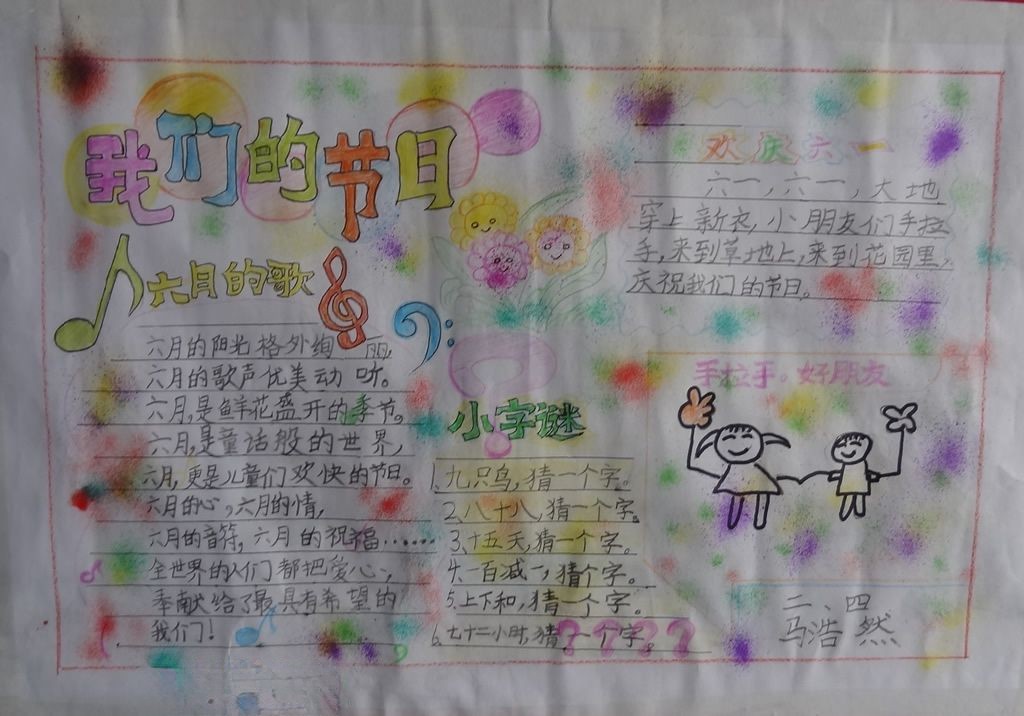 我们的节日
六月的歌
六月的阳光格外绚丽,
六月的歌声优美动听。
六月,是鲜花盛开的季节。
六月,是童话般的世界,
六月,更是儿童们欢快的节日。
六月的心,六月的情,
六月的音符,六月的祝福……
全世界的人们都把爱心,
奉献给了最具有希望的
我们!
小字谜
1.九只鸟,猜一个字。
2.八十八,猜一个字。
3.十五天,猜一个字。
4.一百减一,猜个字。
5.上下和,猜一个字。
6.七十二小时,猜一个字。
????
欢庆六一
六一,六一,大地
穿上新衣,小朋友们手拉
手,来到草地上,来到花园里,
庆祝我们的节日。
手拉手。好朋友
二、四
马浩然